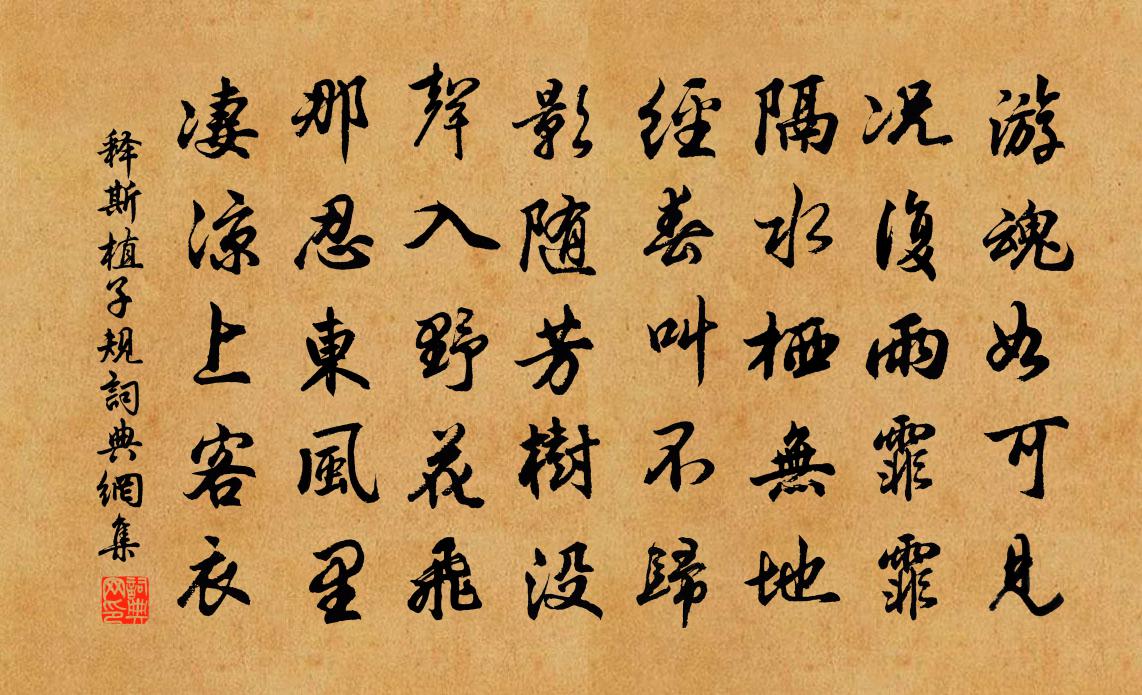 游魂如可見
況復雨霏霏
隔水栖無地
經春叫不歸
影随芳樹没
聲入野花飛
那忍東風里
凄凉上客衣
释斯植子規詞典網集
詞典网印